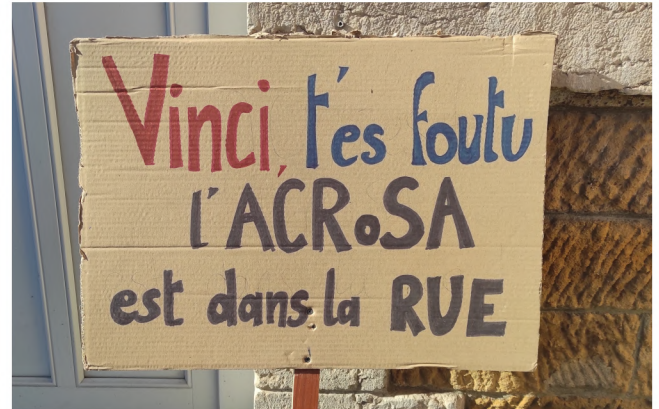 Vinci, t'es foutu
l'ACRoSA
est dans la RUE